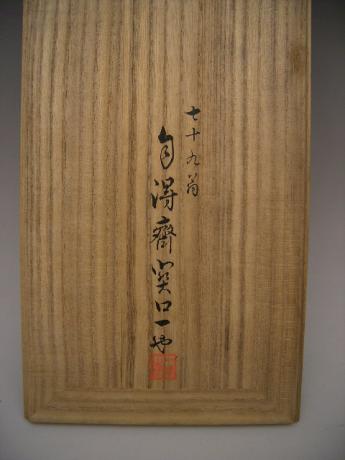 七十九翁
自得齋関口一也